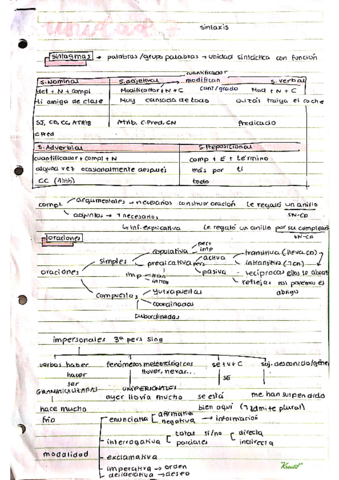 sintaxis
sintagmas → palabras/grupo palabras → unidad sintáctica con función
cuantificador
S. Nominal S. adjetival modifican S. verbal
det + N + compl Modificador + N + C cant/grado Mod + N + C
Mi amiga de clase Muy cansada de todo Quizás traiga el coche
SJ, CD, CC, Atrib Atrib. C.Pred. CN Predicado
C Pred
S. Adverbial S. Preposicional
cuantificador + compl + N comp + E + término
alguna vez ocasionalmente después más por ti
CC (Atrib) todo
compl argumentales → necesarios construir oración Le regaló un anillo
SN-CD
adjuntos → necesarios
inf. explicativa Le regaló un anillo por su cumpleaños
SN-CD
oraciones
copulativa pers
imp
simples predicativa pers activa transitiva (lleva CD)
intransitiva
oraciones imp pasiva recíprocas ellos se
reflejas nos ponemos el
abrigo
compuestas yuxtapuestas
coordinadas
subordinadas
impersonales 3ª pers sing
verbos haber fenómenos meteorológicos se + v + C suj. desconocido/gene
hacer llover, nevar... SE
ser
GRAMATICALIZADAS UNIPERSONALES
hace mucho ayer llovía mucho se está me han suspendido
frío bien aquí (admite plural)
enunciativa afirmativa → información
negativa
interrogativa total sí/no directa
parciales indirecta
modalidad exclamativa
imperativa → orden
desiderativa → deseo